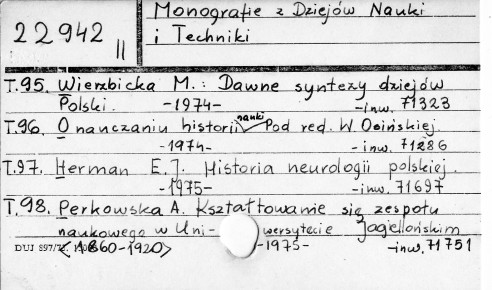 22942 II
Monografie z Dziejów Nauki
i Techniki
T.95. Wierzbicka M.: Dawne syntezy dziejów
Polski. -1974- -inw. 71323
T.96. O nauczaniu historii nauki Pod red. W. Osińskiej.
-1974- -inw. 71286
T.97. Herman E.J. Historia neurologii polskiej.
-1975- -inw. 71697
T.98. Perkowska A. Kształtowanie się zespołu
naukowego w Uni- wersytecie Jagiellońskim
DUJ 897/71.
<1860-1920> -1975- -inw. 71751